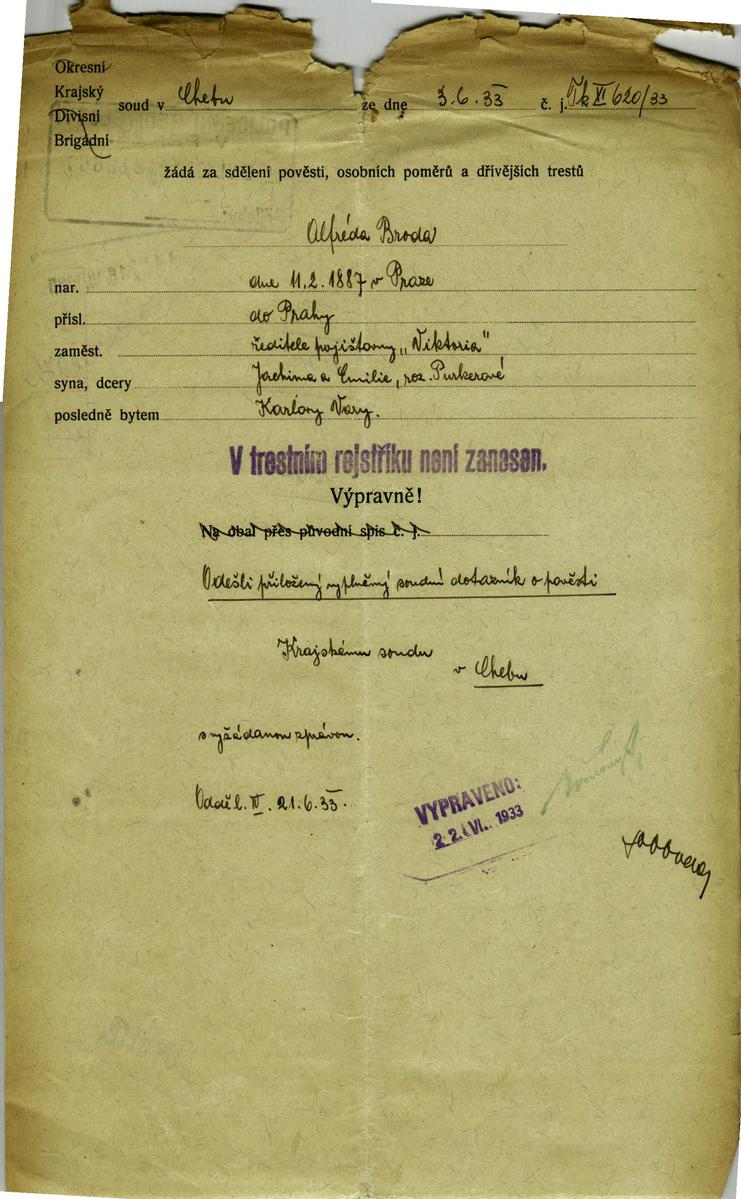 Okresní
Krajský
Divisní
Brigádní
soud v Chebu ze dne 3.6.33 č. j. Tk XI 620/33
žádá za sdělení pověsti, osobních poměrů a dřívějších trestů
Alfréda Broda
nar. dne 11.2.1887 v Praze
přísl. do Prahy
zaměst. ředitele pojišťovny „Viktoria"
syna, dcery Jachima a Emilie, roz. Purkerové
posledně bytem Karlovy Vary.
V trestním rejstříku není zanesen.
Výpravně!
Na obal přes původní spis č. j.
Odešli přiložený vyplněný soudní dotazník o pověsti
Krajskému soudu
v Chebu
s vyžádanou zprávou.
Odděl. IV. 21.6.33.
VYPRAVENO:
22. VI. 1933